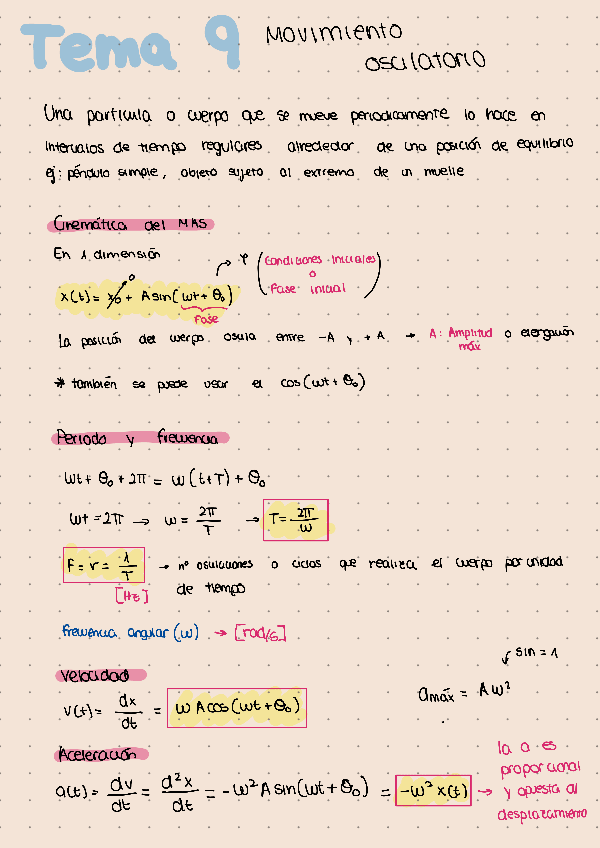 Tema 9 Movimiento
oscilatorio
Una partícula o cuerpo que se mueve periodicamente lo hace en
intervalos de tiempo regulares alrededor de una posición de equilibrio
ej: péndulo simple, objeto sujeto al extremo de un muelle
Cinemática del MAS
En 1 dimensión
→ φ (Condiciones iniciales
o
Fase inicial)
x(t) = x₀ + A sin(ωt + θ₀)
0
Fase
La posición del cuerpo oscila entre -A y +A → A: Amplitud o elongación
máx
* también se puede usar el cos(ωt + θ₀)
Periodo y frecuencia
ωt + θ₀ + 2π = ω(t+T) + θ₀
ωt = 2π → ω = 2π/T → T = 2π/ω
F = ν = 1/T → nº oscilaciones o ciclos que realiza el cuerpo por unidad
[Hz] de tiempo
frecuencia angular (ω) → [rad/s]
sin = 1
Velocidad
amáx = Aω²
v(t) = dx/dt = ωA cos(ωt + θ₀)
Aceleración
a(t) = dv/dt = d²x/dt = -ω²A sin(ωt + θ₀) = -ω²x(t) →
la a es
proporcional
y opuesta al
desplazamiento